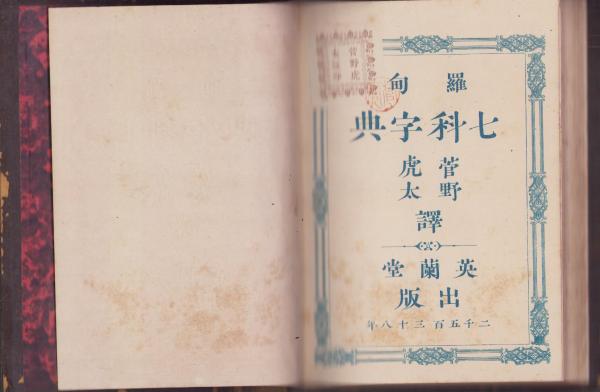 羅甸
七科字典
菅野
虎太
譯
英蘭堂
出版
二千五百三十八年
菅野虎